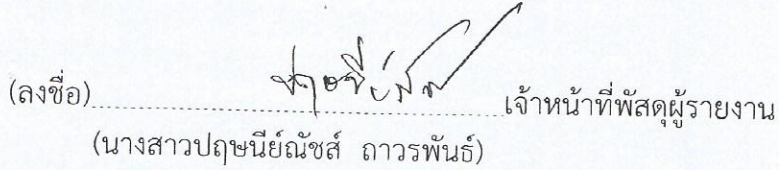 (ลงชื่อ)........................................................เจ้าหน้าที่พัสดุผู้รายงาน
(นางสาวปฤษนีย์ณัชส์ ถาวรพันธ์)